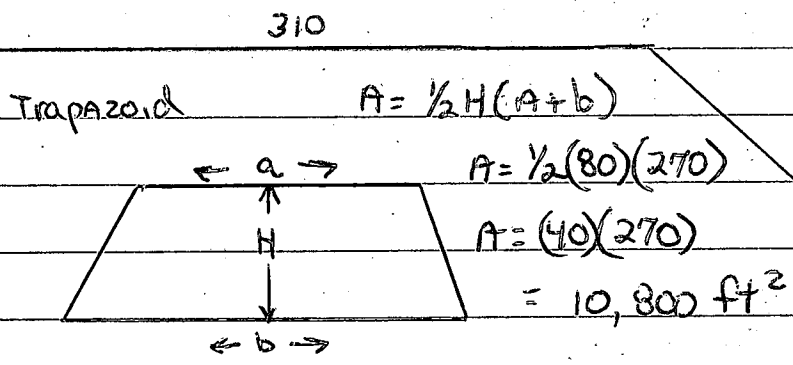 310
Trapazoid A = ½ H(A+b)
← a → A = ½(80)(270)
H A = (40)(270)
= 10,800 ft²
← b →